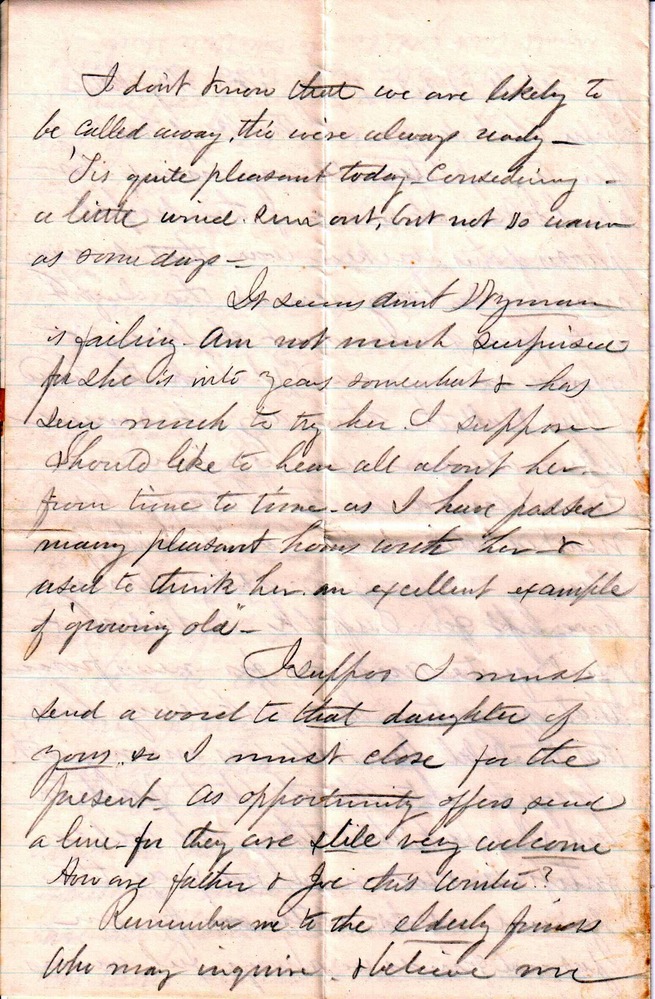 I don't know that we are likely to
be called away, tho' we're always ready –
'Tis quite pleasant today – Considering –
a little wind. Sun out, but not so warm
as some days –
It seems Aunt Wyman
is failing. Am not much surprised
for she is into years somewhat & has
seen much to try her. I suppose
Should like to hear all about her –
from time to time – as I have passed
many pleasant hours with her – &
used to think her an excellent example
of "growing old" –
I suppos I must
send a word to that daughter of
yours, so I must close for the
present – As opportunity offers send
a line – for they are still very welcome
How are father & Joe this winter?
Remember me to the elderly friends
who may inquire – & believe me